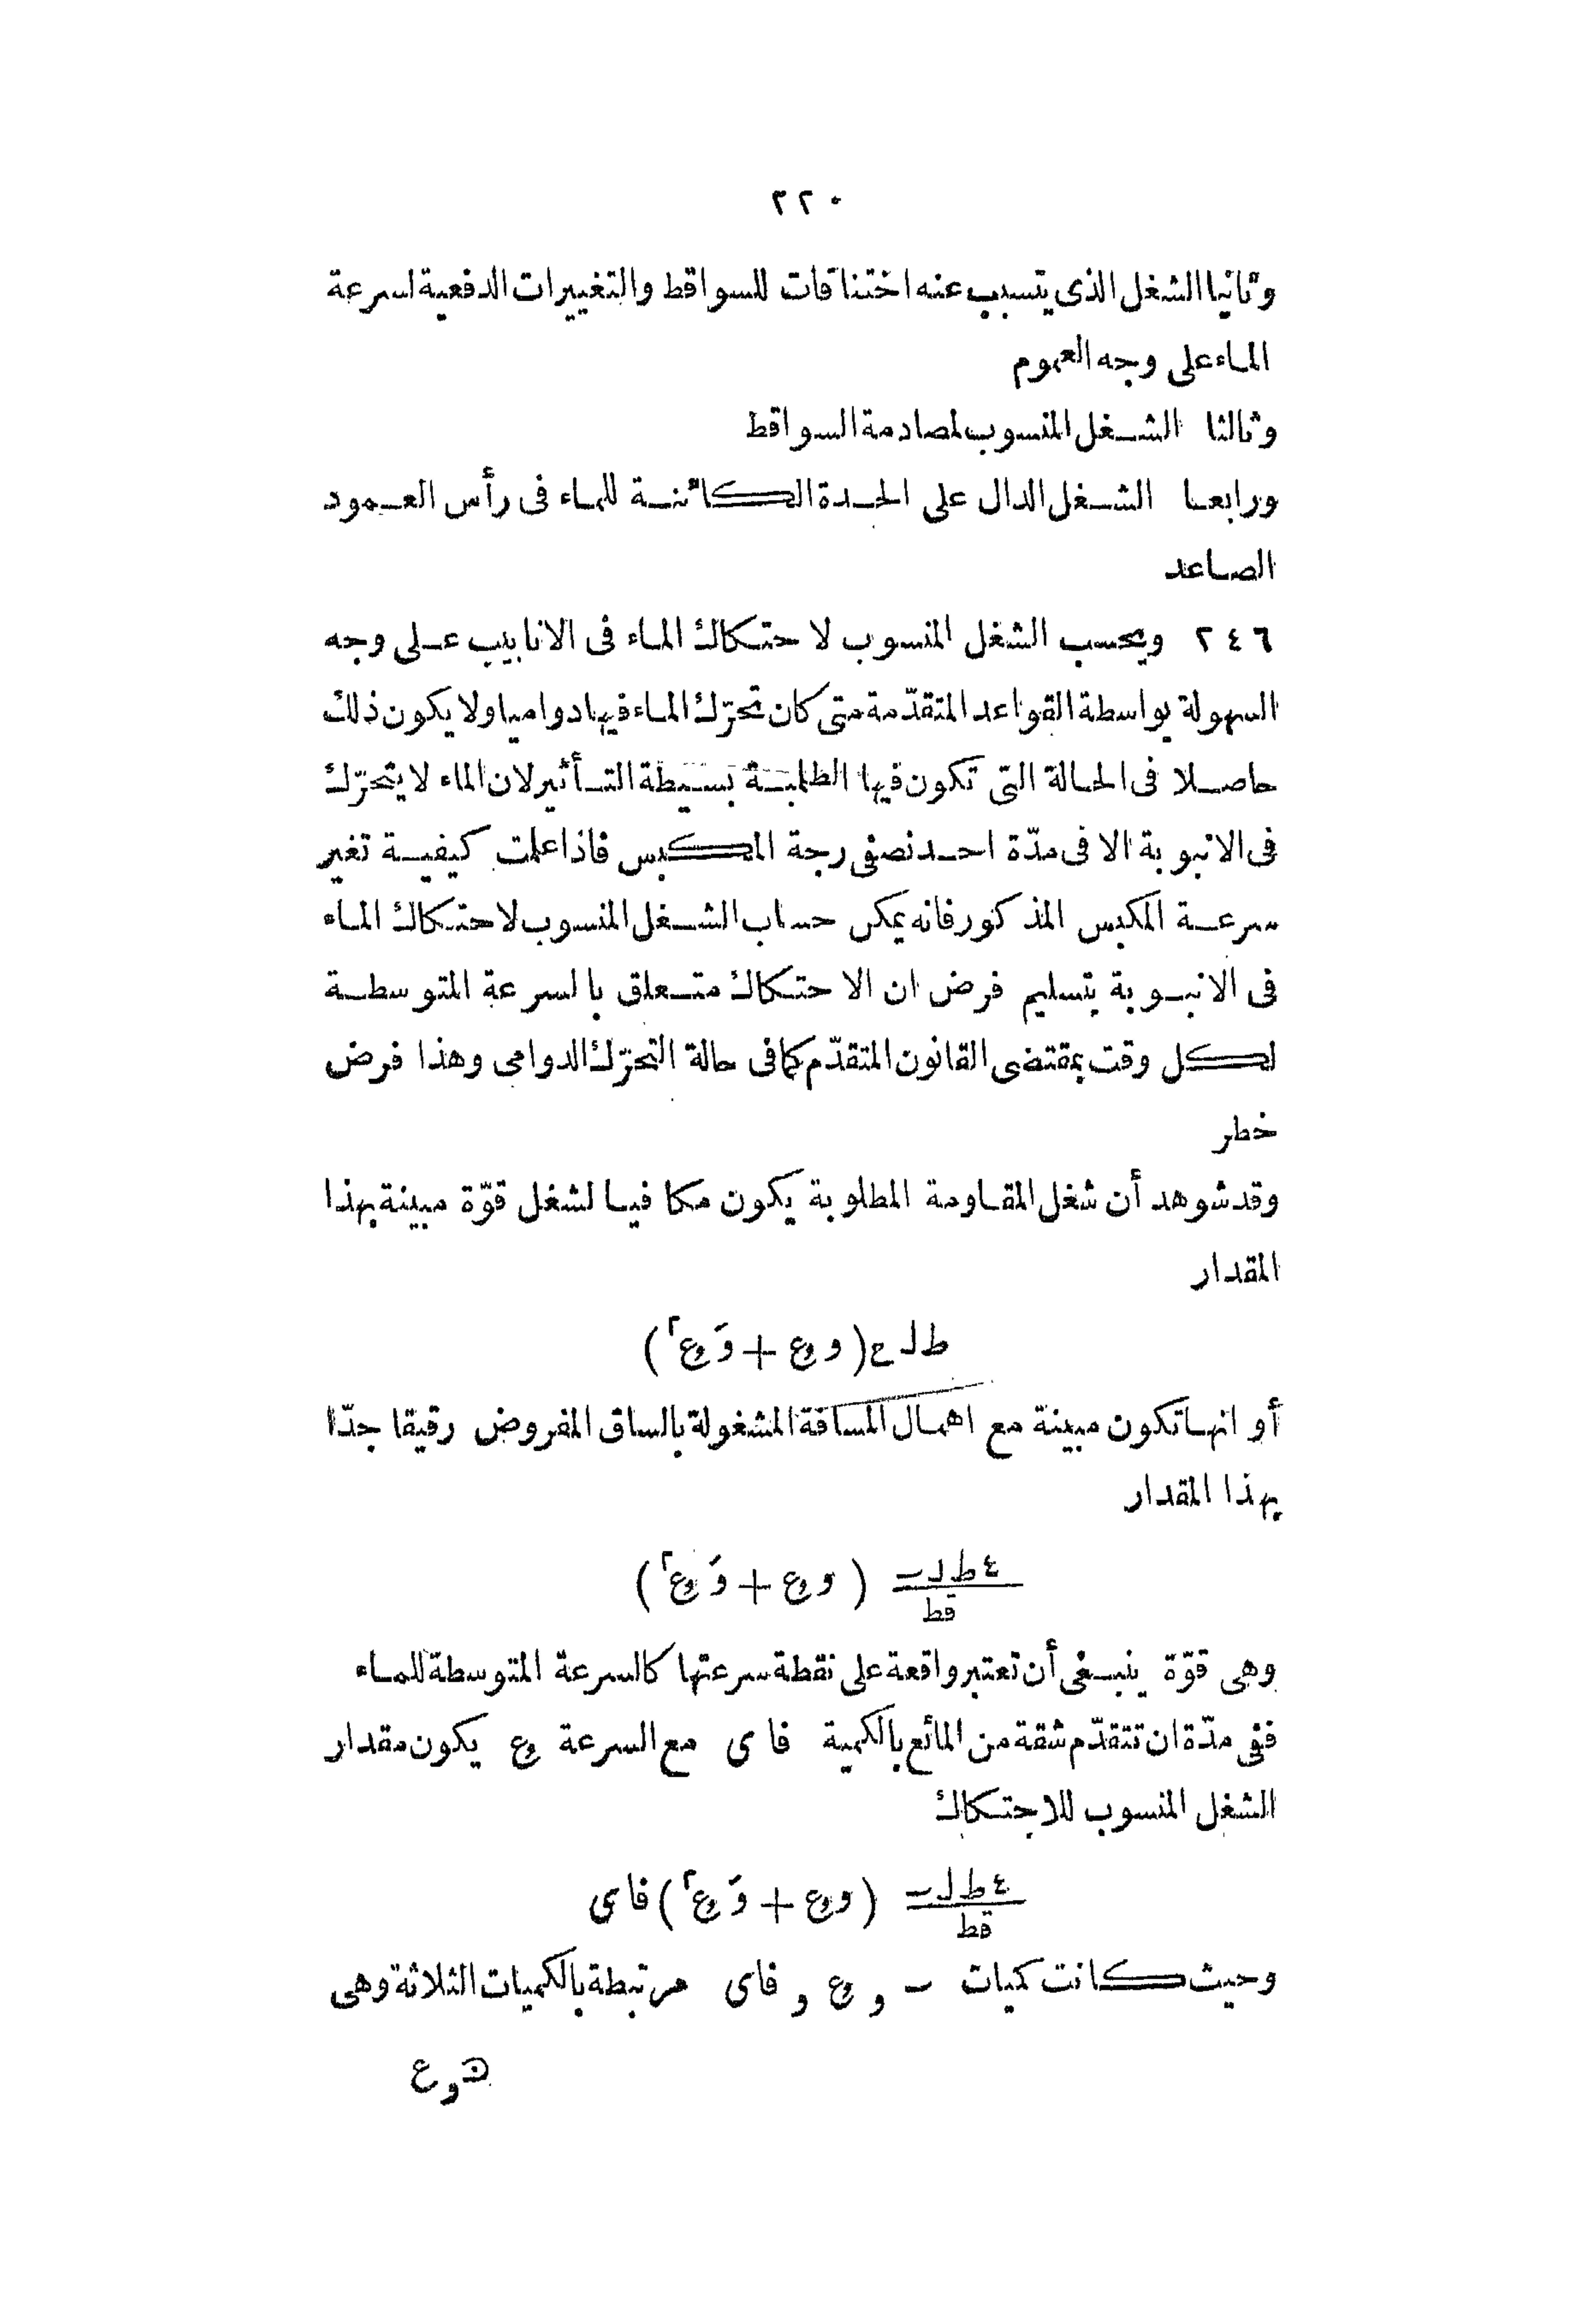 ٢٢٠
وثانيا الشغل الذى يتسبب عنه اختناقات للسواقط والتغييرات الدفعية لسرعة
الماء على وجه العموم
وثالثا الشغل المنسوب لمصادمة السواقط
ورابعا الشغل الدال على الحدة الكائنة للماء فى رأس العمود
الصاعد
٢٤٦ ويحسب الشغل المنسوب لاحتكاك الماء فى الانابيب على وجه
السهولة بواسطة القواعد المتقدّمة متى كان تحرّك الماء فيها دواميا ولا يكون ذلك
حاصلا فى الحالة التى تكون فيها الطلمبة بسيطة التأثير لان الماء لا يتحرّك
فى الانبوبة الا فى مدّة احد نصفى رجة المكبس فاذا علمت كيفية تغير
سرعة المكبس المذكور فانه يمكن حساب الشغل المنسوب لاحتكاك الماء
فى الانبوبة بتسليم فرض ان الاحتكاك متعلق بالسرعة المتوسطة
لكل وقت بمقتضى القانون المتقدّم كما فى حالة التحرّك الدوامى وهذا فرض
خطر
وقد شوهد أن شغل المقاومة المطلوبة يكون مكافيا لشغل قوّة مبينة بهذا
المقدار
ط ل ح (و ع + وَ ع٢)
أو انها تكون مبينة مع اهمال المسافة المشغولة بالساق المفروض رقيقا جدّا
بهذا المقدار
٤ ط ل ـ (و ع + وَ ع٢)
قط
وهى قوّة ينبغى أن تعتبر واقعة على نقطة سرعتها كالسرعة المتوسطة للماء
ففى مدّة ان تتقدّم شقة من المائع بالكمية فاى مع السرعة ع يكون مقدار
الشغل المنسوب للاحتكاك
٤ ط ل ـ (و ع + وَ ع٢) فاى
قط
وحيث كانت كميات ـ و ع و فاى مرتبطة بالكميات الثلاثة وهى
ں و ع